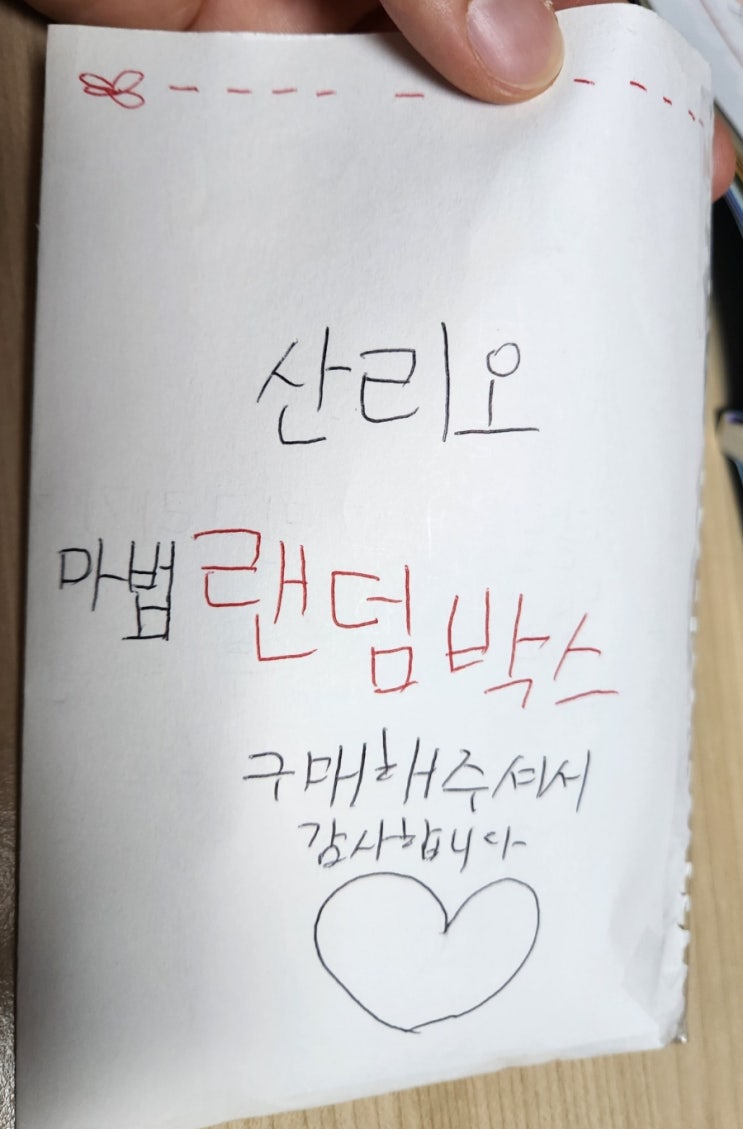 산리오
마법 랜덤박스
구매해주셔서
감사합니다